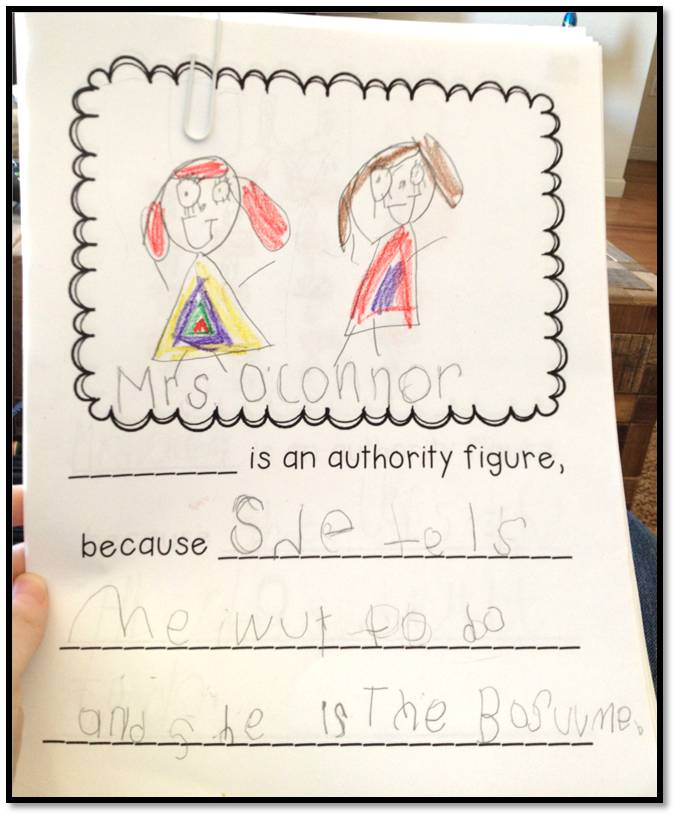 Mrs O'connor
________ is an authority figure,
because She tels
me wut to do
and she is The Bosuvme.